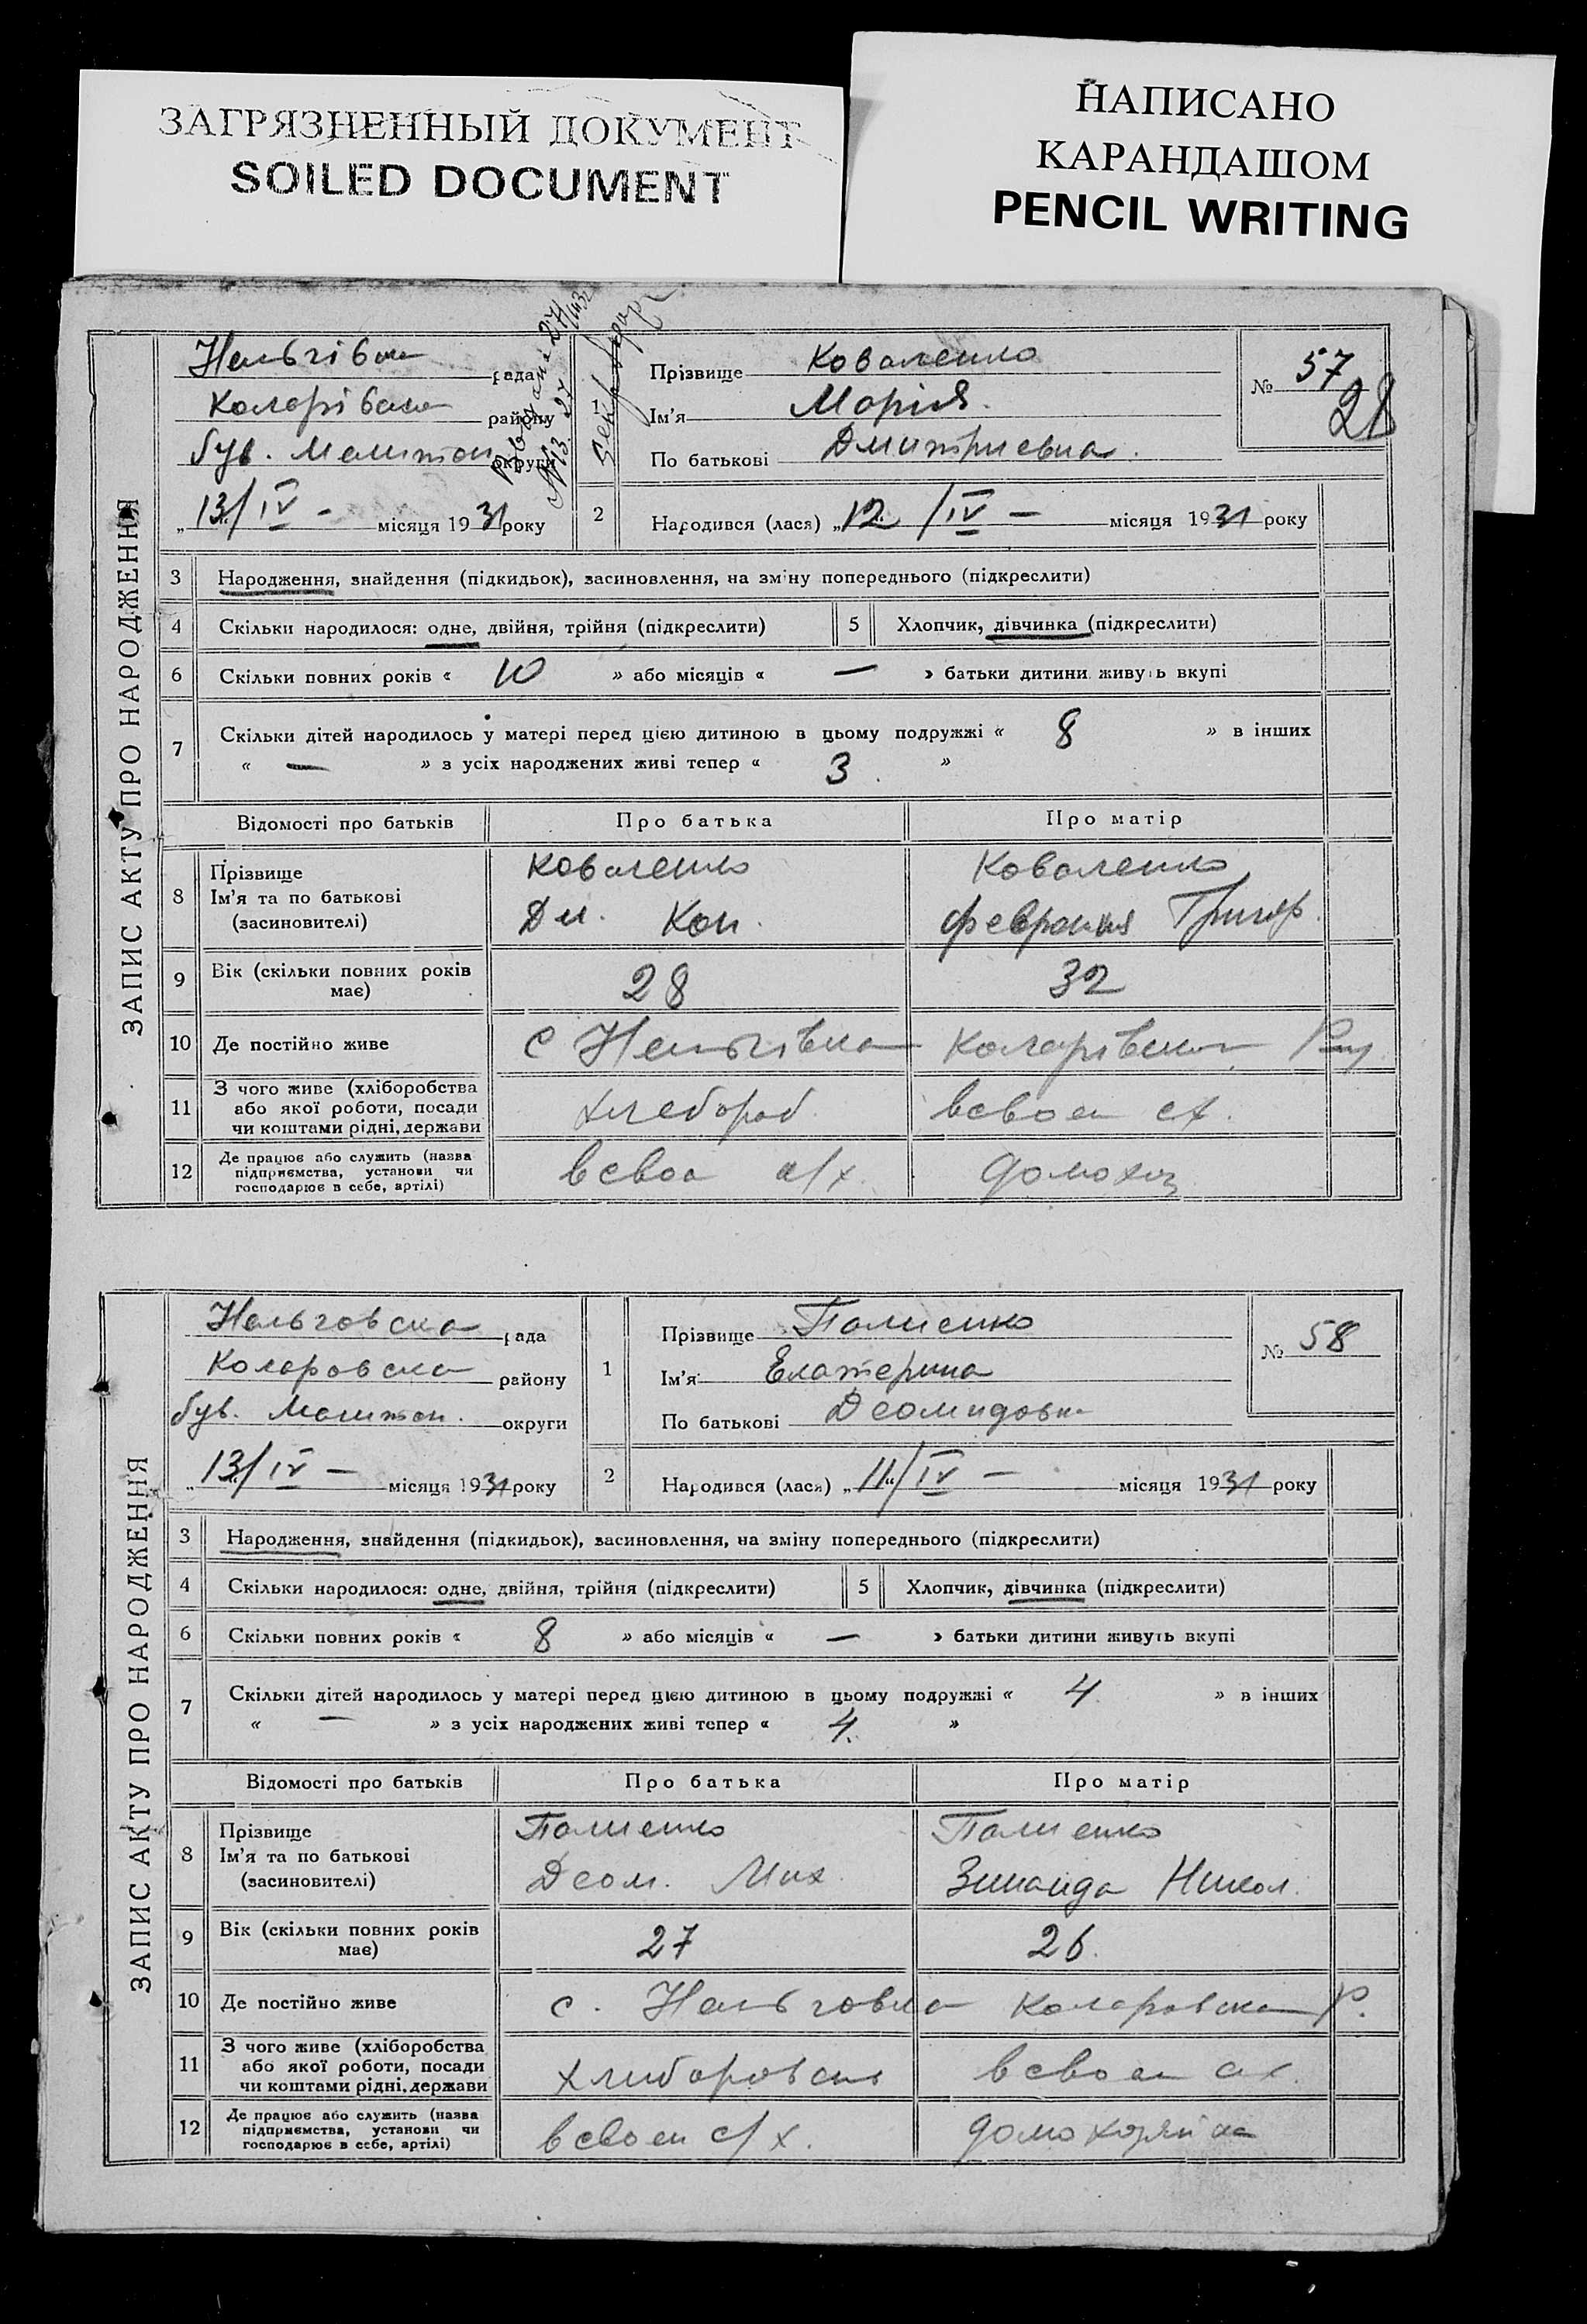 ЗАГРЯЗНЕННЫЙ ДОКУМЕНТ
SOILED DOCUMENT
НАПИСАНО
КАРАНДАШОМ
PENCIL WRITING
ЗАПИС АКТУ ПРО НАРОДЖЕННЯ
рада
району
був. округи
„13/IV – місяця 1931 року
1 Прізвище Коваленко
Ім'я Марія.
По батькові Дмитриевна.
№ 57
28
2 Народився (лася) „12/IV – місяця 1931 року
3 Народження, знайдення (підкидьок), засиновлення, на зміну попереднього (підкреслити)
4 Скільки народилося: одне, двійня, трійня (підкреслити) 5 Хлопчик, дівчинка (підкреслити)
6 Скільки повних років « 10 » або місяців « — » батьки дитини живуть вкупі
7 Скільки дітей народилось у матері перед цією дитиною в цьому подружжі « 8 » в інших
« — » з усіх народжених живі тепер « 3. »
Відомості про батьків Про батька Про матір
8 Прізвище
Ім'я та по батькові
(засиновителі)
Коваленко
Дм. Кон.
Коваленко
Феврония Григор.
9 Вік (скільки повних років має) 28 32
10 Де постійно живе с Нельгівка Коларівского
11 З чого живе (хліборобства
або якої роботи, посади
чи коштами рідні, держави
хлебороб. в своем сх.
12 Де працює або служить (назва
підприємства, установи чи
господарює в себе, артілі)
в свое с/х. домохоз
ЗАПИС АКТУ ПРО НАРОДЖЕННЯ
Нельговска рада
Коларовска району
був. Мелитоп. округи
„13/IV – місяця 1931 року
1 Прізвище Палиенко
Ім'я Екатерина
По батькові
№ 58
2 Народився (лася) „11/IV – місяця 1931 року
3 Народження, знайдення (підкидьок), засиновлення, на зміну попереднього (підкреслити)
4 Скільки народилося: одне, двійня, трійня (підкреслити) 5 Хлопчик, дівчинка (підкреслити)
6 Скільки повних років « 8 » або місяців « — » батьки дитини живуть вкупі
7 Скільки дітей народилось у матері перед цією дитиною в цьому подружжі « 4 » в інших
« — » з усіх народжених живі тепер « 4. »
Відомості про батьків Про батька Про матір
8 Прізвище
Ім'я та по батькові
(засиновителі)
Палиенко
Деом. Мих.
Палиенко
Зинаида Никол.
9 Вік (скільки повних років має) 27 26.
10 Де постійно живе с. Нельговка Коларовска р.
11 З чого живе (хліборобства
або якої роботи, посади
чи коштами рідні, держави
в своем сх.
12 Де працює або служить (назва
підприємства, установи чи
господарює в себе, артілі)
в своем с/х. домохозяйка